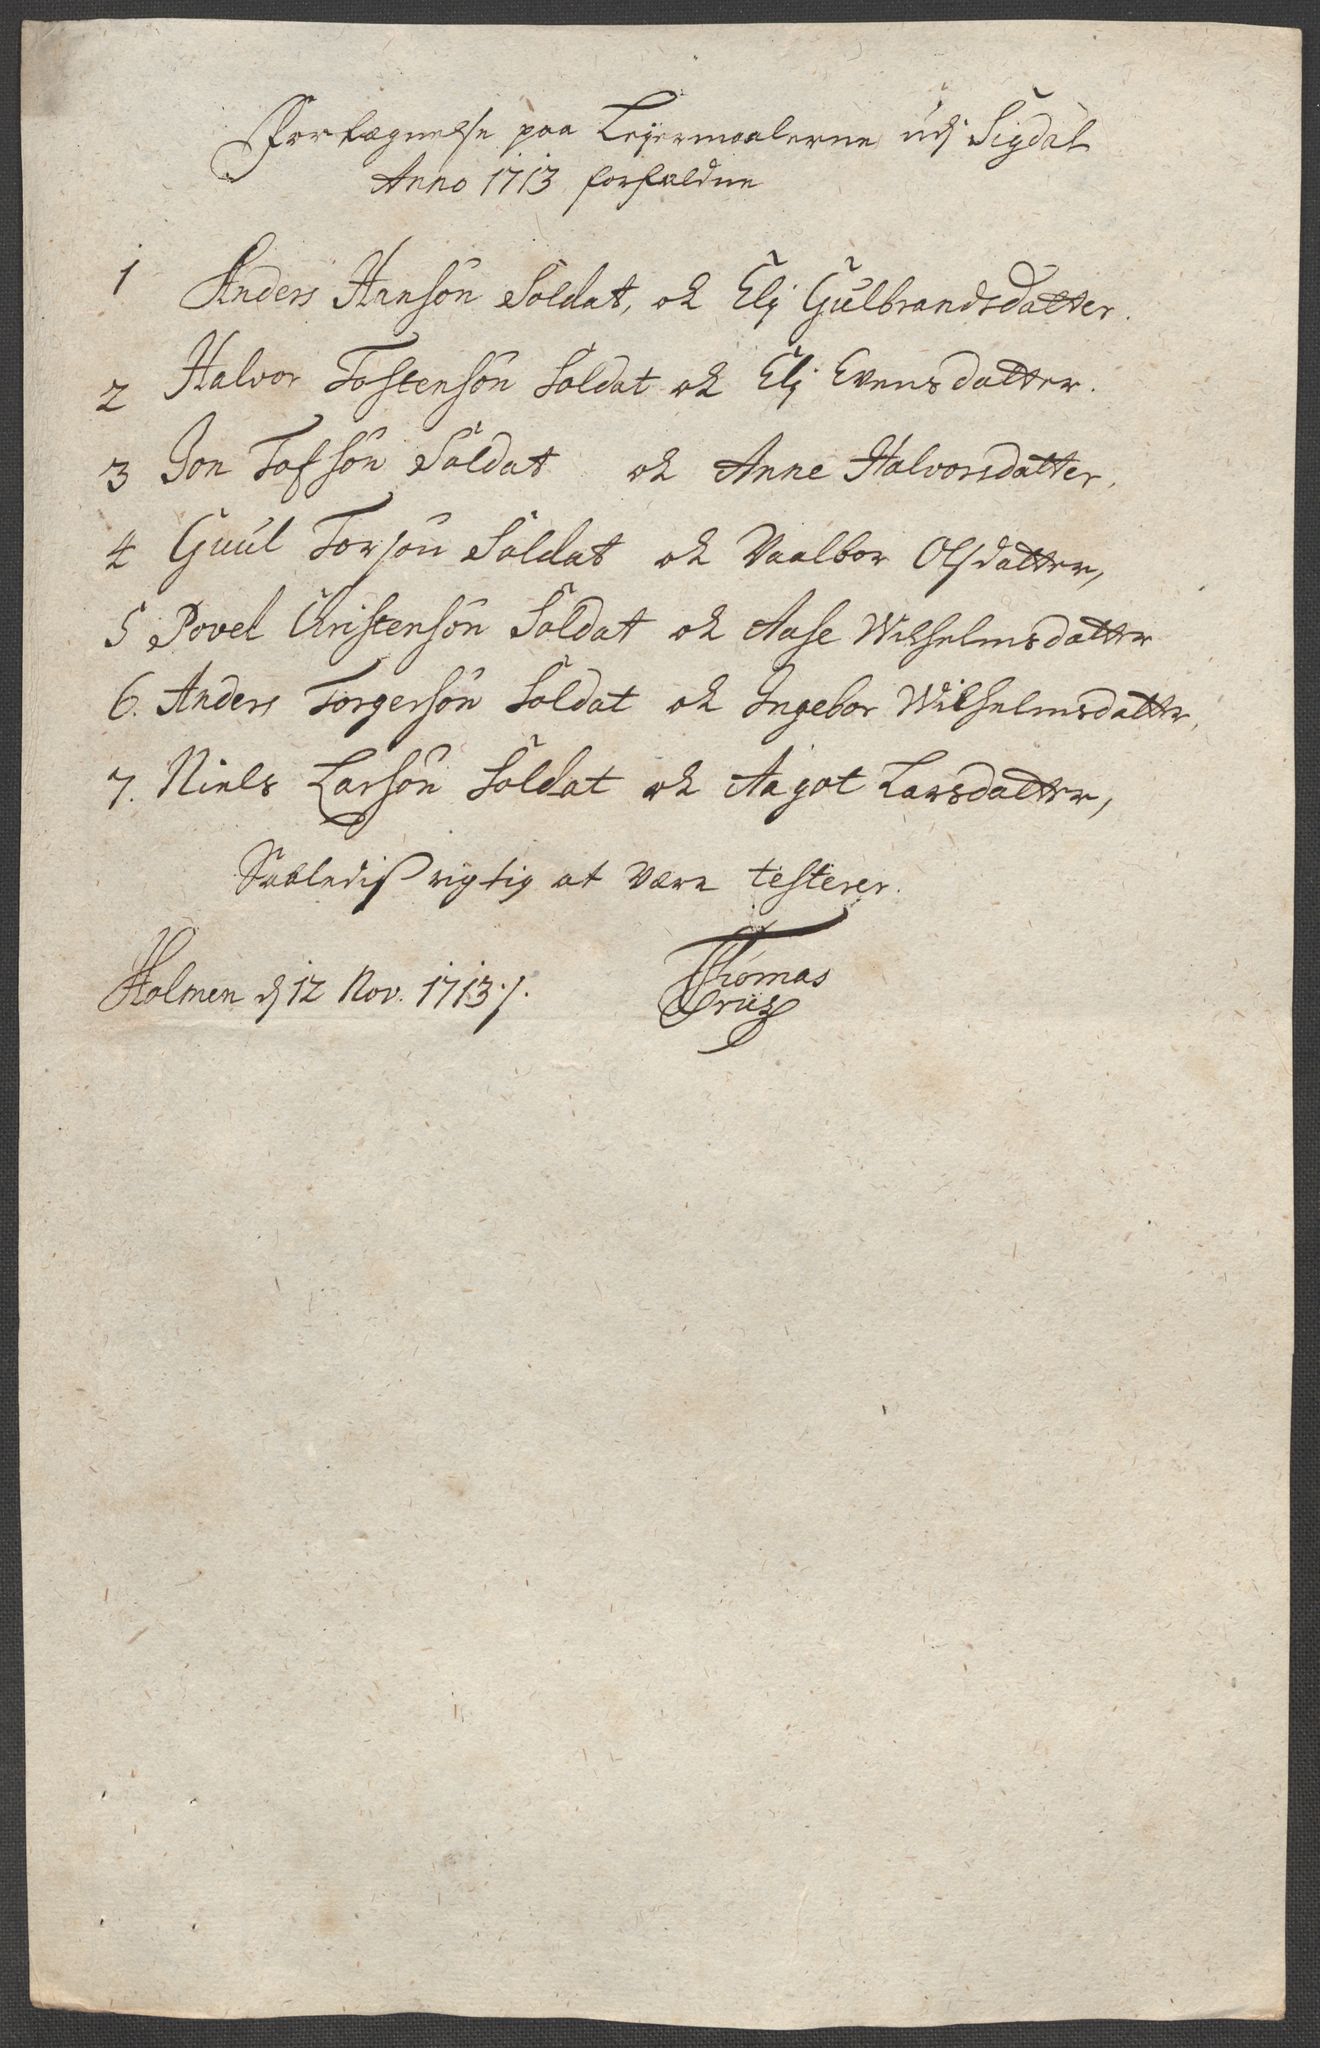 Fortægnelse paa Leyermaalerne udj Sigdal
Anno 1713 forfaldne
1 Anders Hansön Soldat, ok Elj Gulbrandsdatter.
2 Halvor Tostensön Soldat ok Elj Evensdatter.
3 Jon Tofsön Soldat ok Anne Halvorsdatter,
4 Guul Torsön Soldat ok Vaalbor Olsdatter,
5 Povel Christensön Soldat ok Aase Wilhelmsdatter
6. Anders Torgersön Soldat ok Ingebor Wilhelmsdatter,
7. Niels Larsön Soldat ok Aagot Larsdatter,
Saaledis rigtig at være testerer.
Holmen d 12 Nov. 1713 ·/.
Thomas